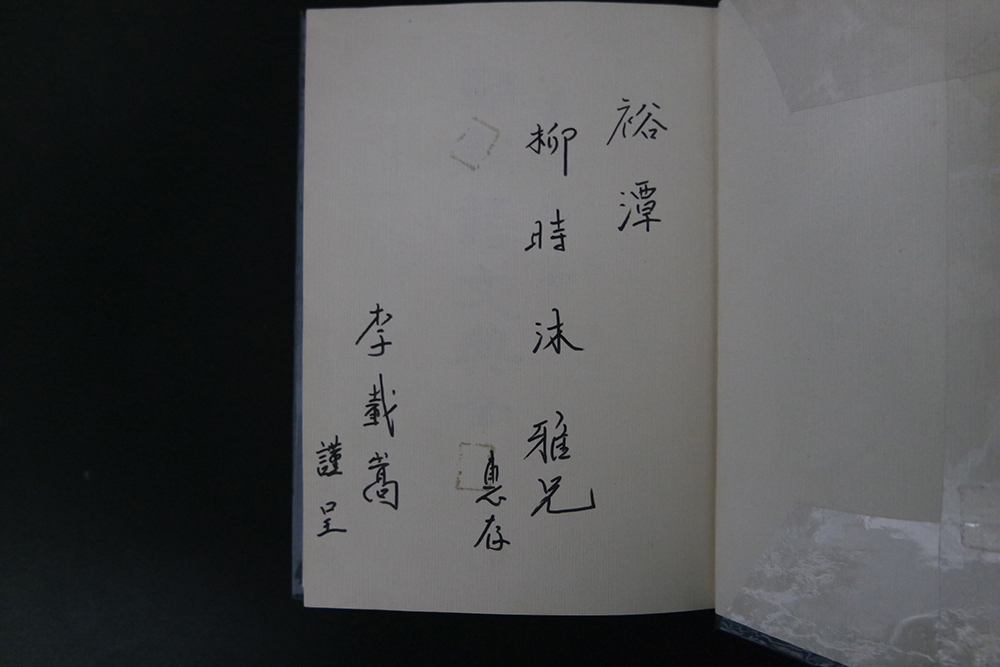 裕潭
柳時沐雅兄
惠存
李載嵩
謹呈